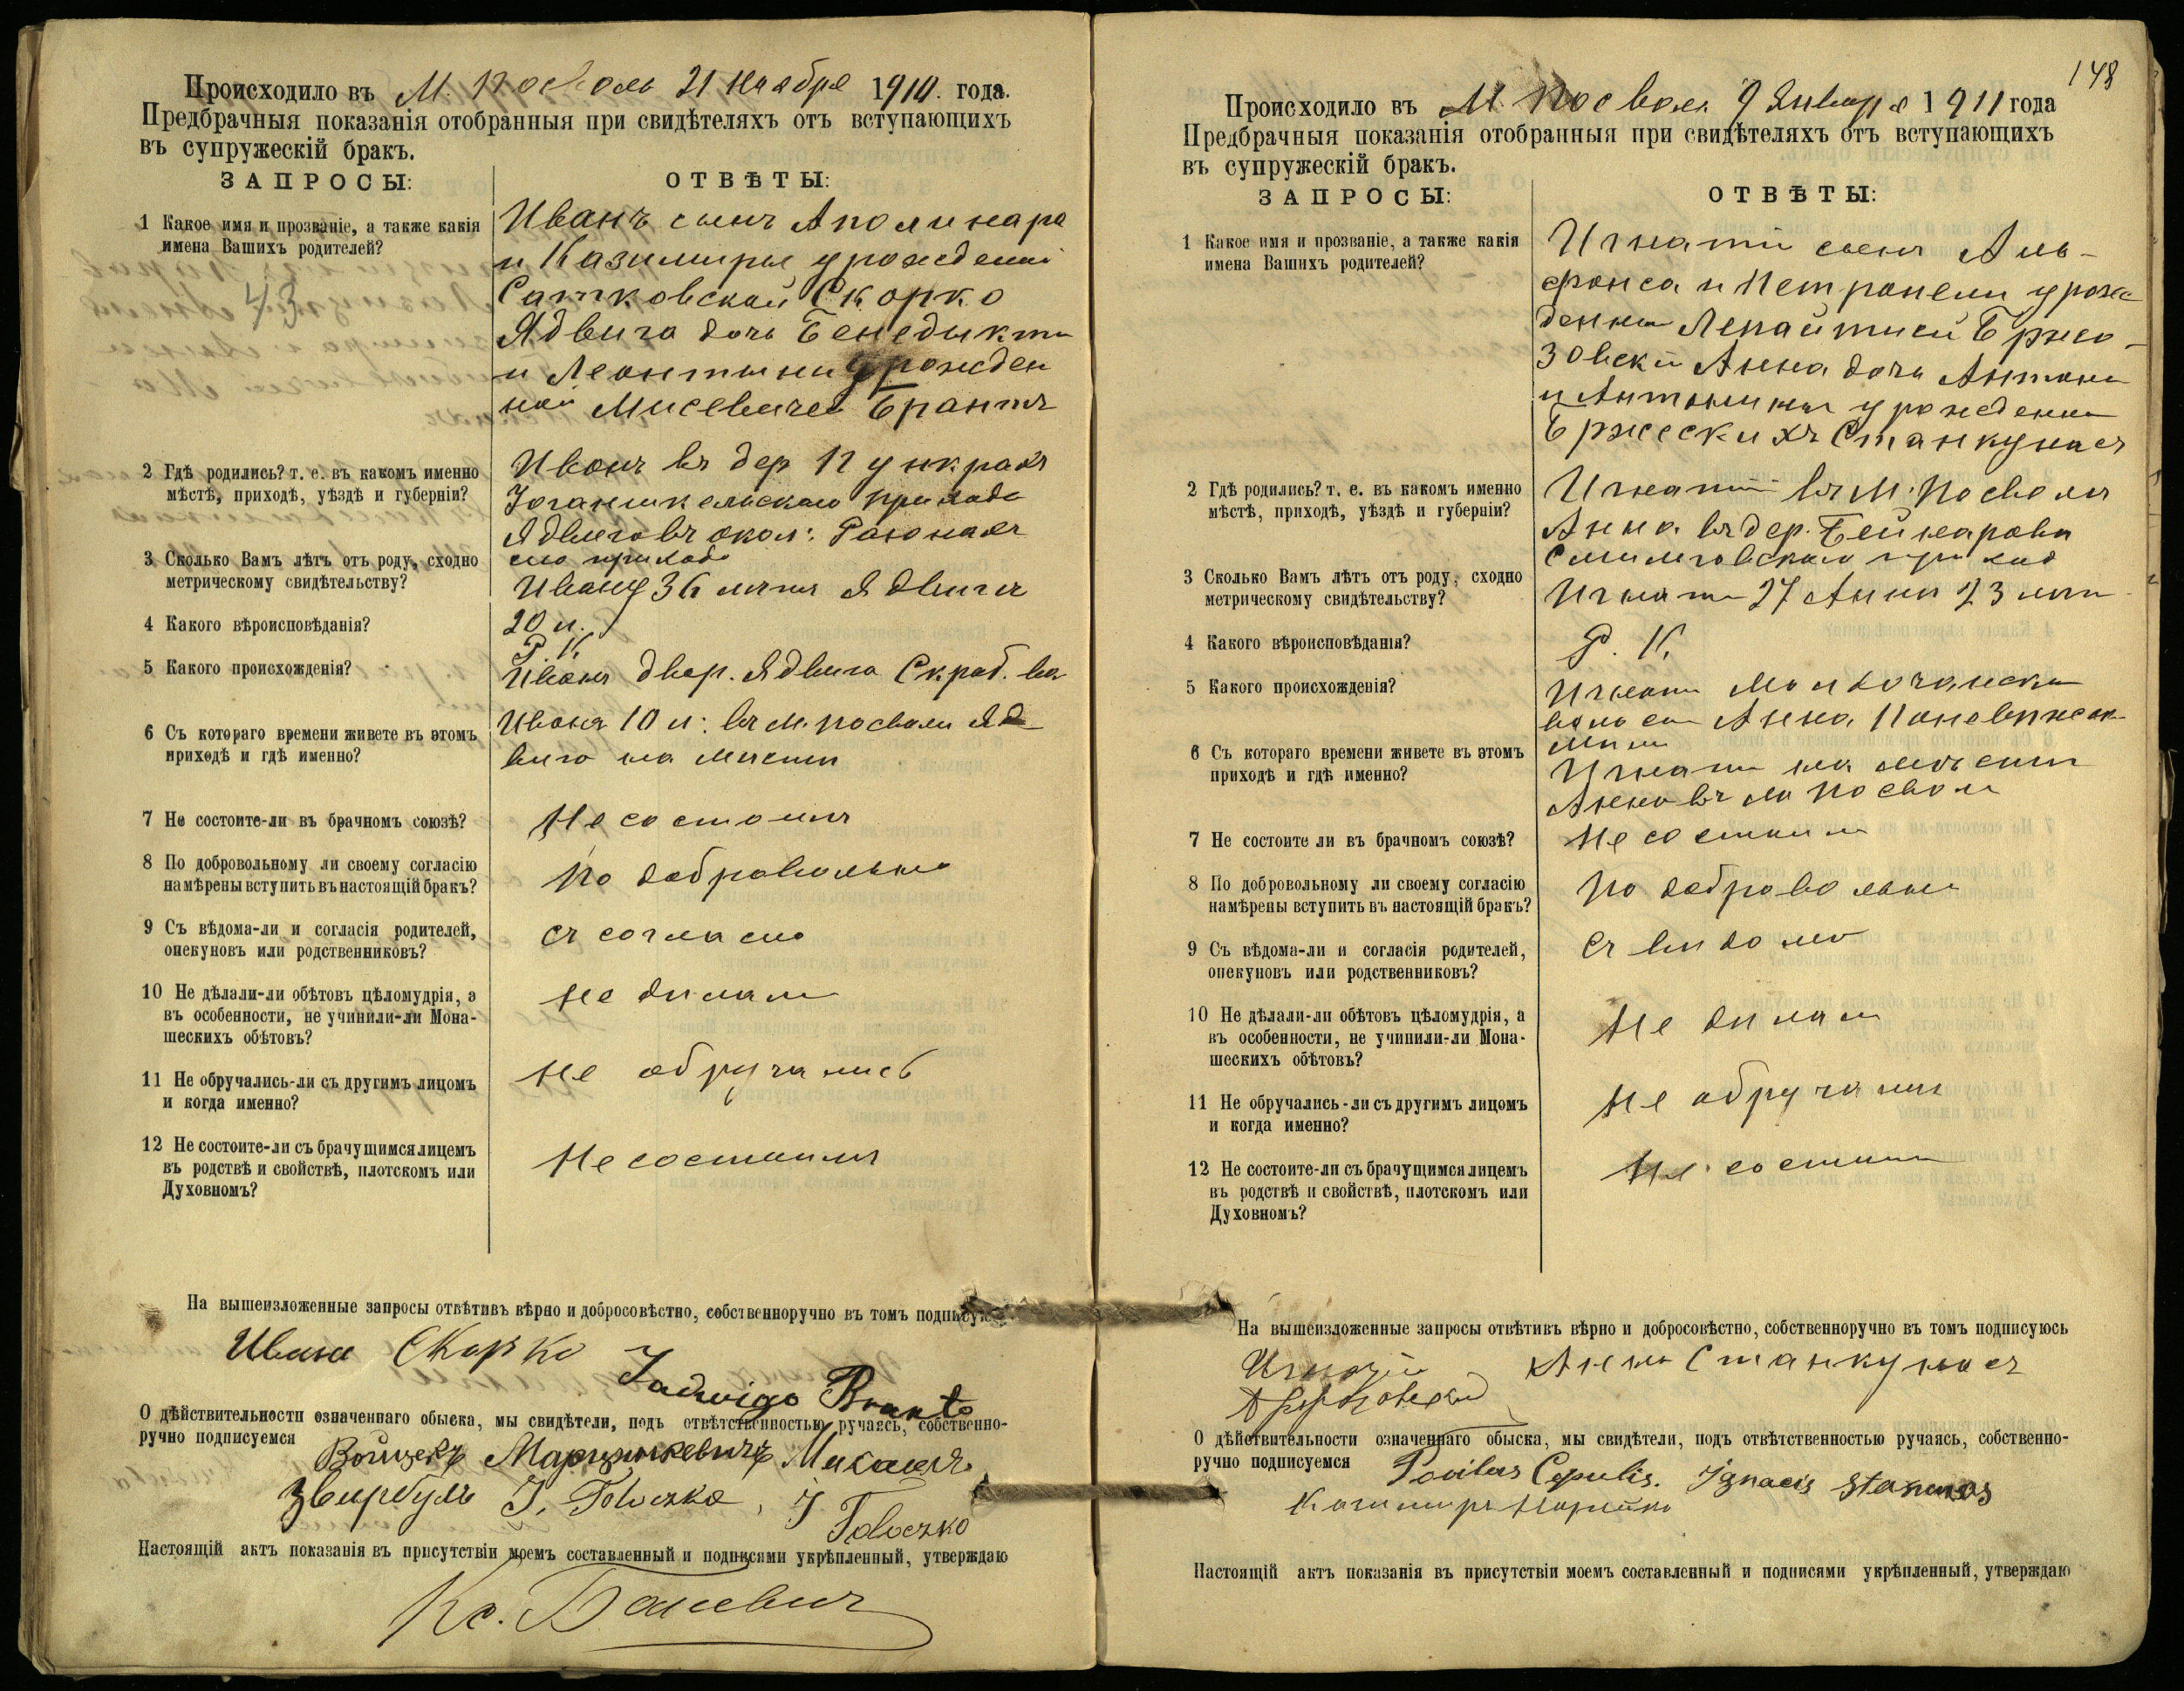 Происходило въ М. Посволь 21 Ноября 1910. года.
Предбрачныя показанія отобранныя при свидѣтеляхъ отъ вступающихъ
въ супружескій бракъ.
ЗАПРОСЫ:
ОТВѢТЫ:
1 Какое имя и прозваніе, а также какія
имена Вашихъ родителей?
43
Иванъ сынъ Аполинара
и Казимиры урожденной
Сатковской Скорко
Ядвига дочь Бенедыкта
и Леонтыны урожден
ной Мисевичъ Брантъ
2 Гдѣ родились? т. е. въ какомъ именно
мѣстѣ, приходѣ, уѣздѣ и губерніи?
Иванъ въ дер Пункрахъ
Іоганишкельскаго прихода
Ядвига въ окол:
сего прихода
3 Сколько Вамъ лѣтъ отъ роду, сходно
метрическому свидѣтельству?
Ивану 36 лѣтъ Ядвиги
20 л.
4 Какого вѣроисповѣданія?
Р. К.
5 Какого происхожденія?
Иванъ двор. Ядвига
6 Съ котораго времени живете въ этомъ
приходѣ и гдѣ именно?
Иванъ 10 л: въ м. Посволи Яд
вига на мѣсти
7 Не состоите-ли въ брачномъ союзѣ?
Не состоимъ
8 По добровольному ли своему согласію
намѣрены вступить въ настоящій бракъ?
По добровольно
9 Съ вѣдома-ли и согласія родителей,
опекуновъ или родственниковъ?
Съ согласію
10 Не дѣлали-ли обѣтовъ цѣломудрія, а
въ особенности, не учинили-ли Мона-
шескихъ обѣтовъ?
Не дилали
11 Не обручались-ли съ другимъ лицомъ
и когда именно?
Не обручались
12 Не состоите-ли съ брачущимся лицемъ
въ родствѣ и свойствѣ, плотскомъ или
Духовномъ?
Не состоимъ
На вышеизложенные запросы отвѣтивъ вѣрно и добросовѣстно, собственноручно въ томъ подписуюсь
Иванъ Скорко
Jadwiga Brantо
О дѣйствительности означеннаго обыска, мы свидѣтели, подъ отвѣтственностью ручаясь, собственно-
ручно подписуемся Войцехъ Марцинкевичъ Михаилъ
Звирбуль J. Toloczko, J Toloczko
Настоящій актъ показанія въ присутствіи моемъ составленный и подписями укрѣпленный, утверждаю
Кс. Баневич
148
Происходило въ М. Посволь 9 Января 1911 года
Предбрачныя показанія отобранныя при свидѣтеляхъ отъ вступающихъ
въ супружескій бракъ.
ЗАПРОСЫ:
ОТВѢТЫ:
1 Какое имя и прозваніе, а также какія
имена Вашихъ родителей?
Игнатій сынъ Аль-
фонса и Петронели урож
денны Бржо-
зовскій Анна дочь Антона
и Антонины урожденны
Станкунасъ
2 Гдѣ родились? т. е. въ какомъ именно
мѣстѣ, приходѣ, уѣздѣ и губерніи?
Игнатій въ М. Посволи
Анна въ дер. Бейнаравы
Смильговскаго приход
3 Сколько Вамъ лѣтъ отъ роду, сходно
метрическому свидѣтельству?
Игнати 27 Анни 23 лѣт
4 Какого вѣроисповѣданія?
Р. К.
5 Какого происхожденія?
Игнати
Анна
6 Съ котораго времени живете въ этомъ
приходѣ и гдѣ именно?
Игнати на мѣсти
Анна въ м Посвол
7 Не состоите ли въ брачномъ союзѣ?
Не состоим
8 По добровольному ли своему согласію
намѣрены вступить въ настоящій бракъ?
По добровольно
9 Съ вѣдома-ли и согласія родителей,
опекуновъ или родственниковъ?
Съ видома
10 Не дѣлали-ли обѣтовъ цѣломудрія, а
въ особенности, не учинили-ли Мона-
шескихъ обѣтовъ?
Не дилали
11 Не обручались-ли съ другимъ лицомъ
и когда именно?
Не обручались
12 Не состоите-ли съ брачущимся лицемъ
въ родствѣ и свойствѣ, плотскомъ или
Духовномъ?
Не состоим
На вышеизложенные запросы отвѣтивъ вѣрно и добросовѣстно, собственноручно въ томъ подписуюсь
Игнацій Анна Станкунасъ
О дѣйствительности означеннаго обыска, мы свидѣтели, подъ отвѣтственностью ручаясь, собственно-
ручно подписуемся Povilas Cepulis. Ignacis
Казимиръ
Настоящій актъ показанія въ присутствіи моемъ составленный и подписями укрѣпленный, утверждаю